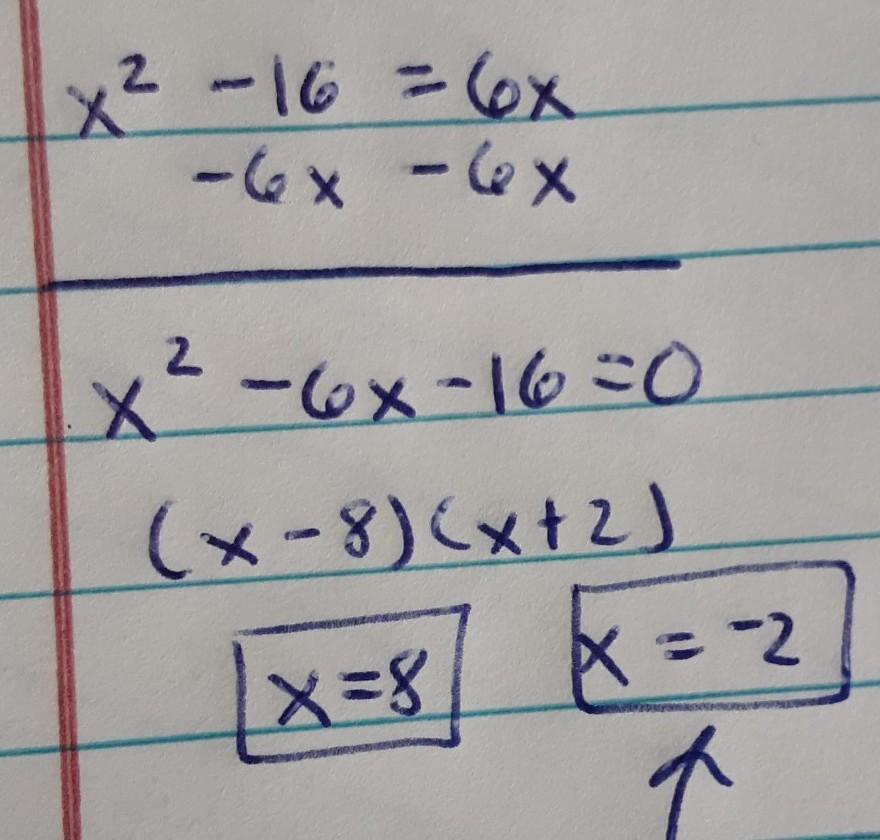 x² -16 = 6x
-6x -6x
x² -6x -16 = 0
(x-8)(x+2)
x=8 x = -2